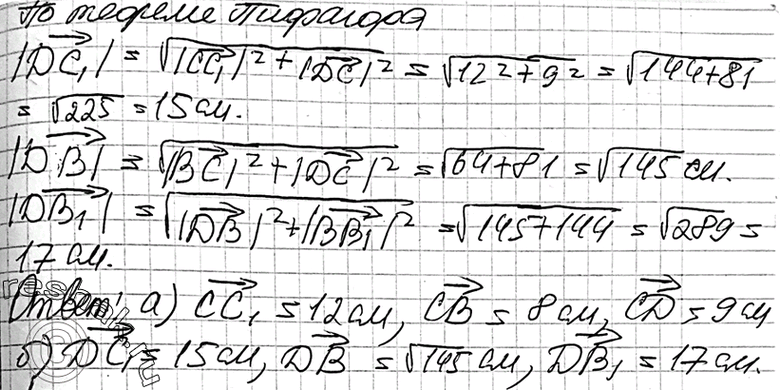 По теореме Пифагора
|DC₁| = √|CC₁|² + |DC|² = √12² + 9² = √144+81
= √225 = 15 см.
|DB| = √|BC|² + |DC|² = √64+81 = √145 см.
|DB₁| = √|DB|² + |BB₁|² = √145+144 = √289 =
17 см.
Ответ: а) CC₁ = 12 см, CB = 8 см, CD = 9 см
б) DC₁ = 15 см, DB = √145 см, DB₁ = 17 см.